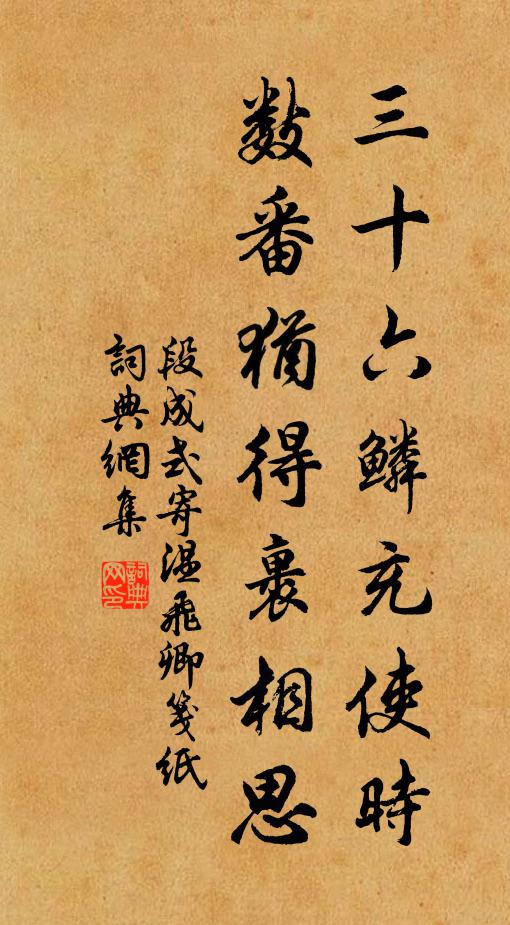 三十六鱗充使時
數番猶得裹相思
段成式寄溫飛卿箋紙
詞典網集
詞典网印